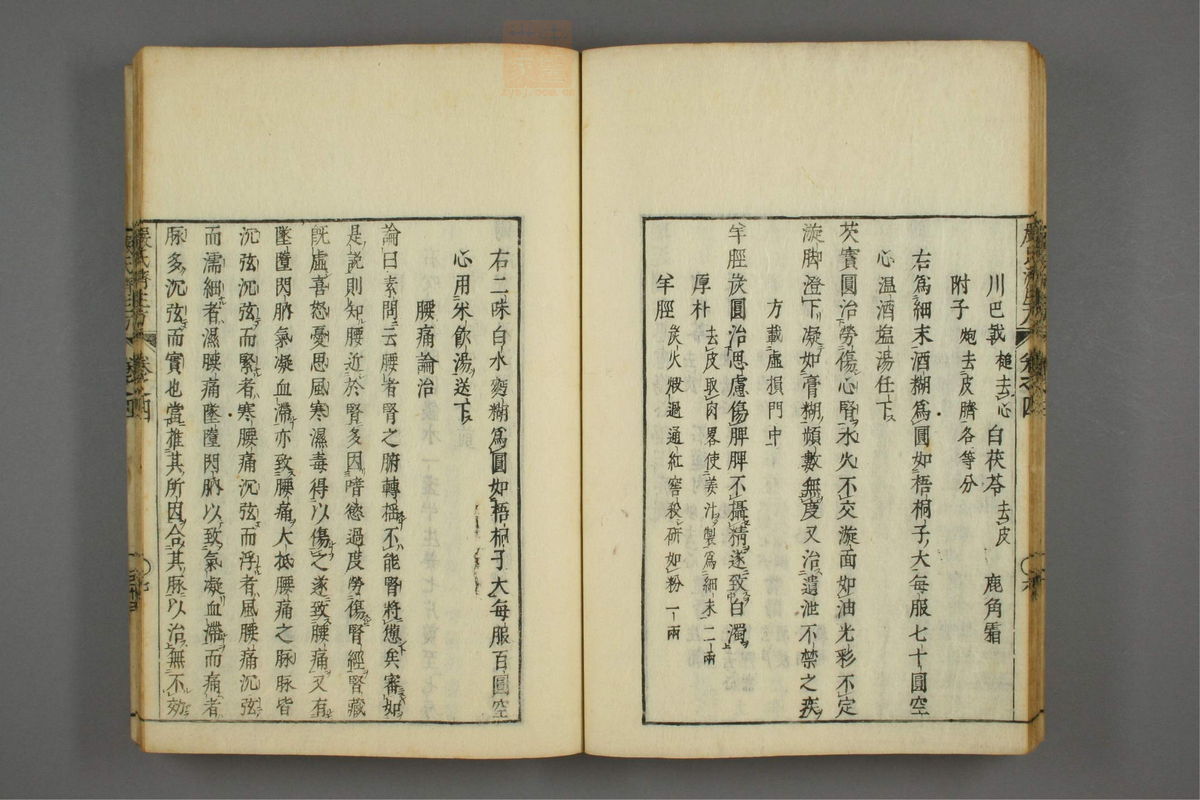 川巴戟 槌去心 白茯苓 去皮 鹿角霜
附子 炮去皮臍各等分
右爲細末酒糊爲圓如梧桐子大每服七十圓空
心溫酒塩湯任下
芡實圓治勞傷心腎水火不交漩面如油光彩不定
漩脚澄下凝如膏糊頻數無度又治遺泄不禁之疾
方載虛損門中
羊脛炭圓治思慮傷脾脾不攝精遂致白濁
厚朴 去皮取肉畧使姜汁製爲細末二兩
羊脛 炭火煅過通紅窨殺研如粉一兩
嚴氏濟生方 卷之四
右二味白水麪糊爲圓如梧桐子大每服百圓空
心用米飮湯送下
腰痛論治
論曰素問云腰者腎之腑轉揺不能腎將憊矣審如
是説則知腰近於腎多因嗜慾過度勞傷腎經腎藏
既虛喜怒憂思風寒濕毒得以傷之遂致腰痛又有
墜墮閃肭氣凝血滯亦致腰痛大抵腰痛之脉脉皆
沉弦沉弦而緊者寒腰痛沉弦而浮者風腰痛沉弦
而濡細者濕腰痛墜墮閃肭以致氣凝血滯而痛者
脉多沉弦而實也當推其所因合其脉以治無不効
嚴氏濟生方 卷之四 七